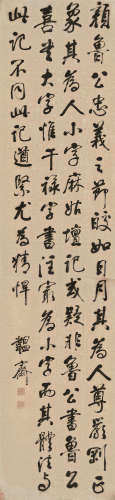 顏魯公忠義之節皎如日月其為人尊嚴剛正
象其為人小字麻姑壇記或疑非魯公書魯公
喜書大字惟干祿字書注最為小字而其體法與
此記不同此記遒緊尤為精悍
韞齋